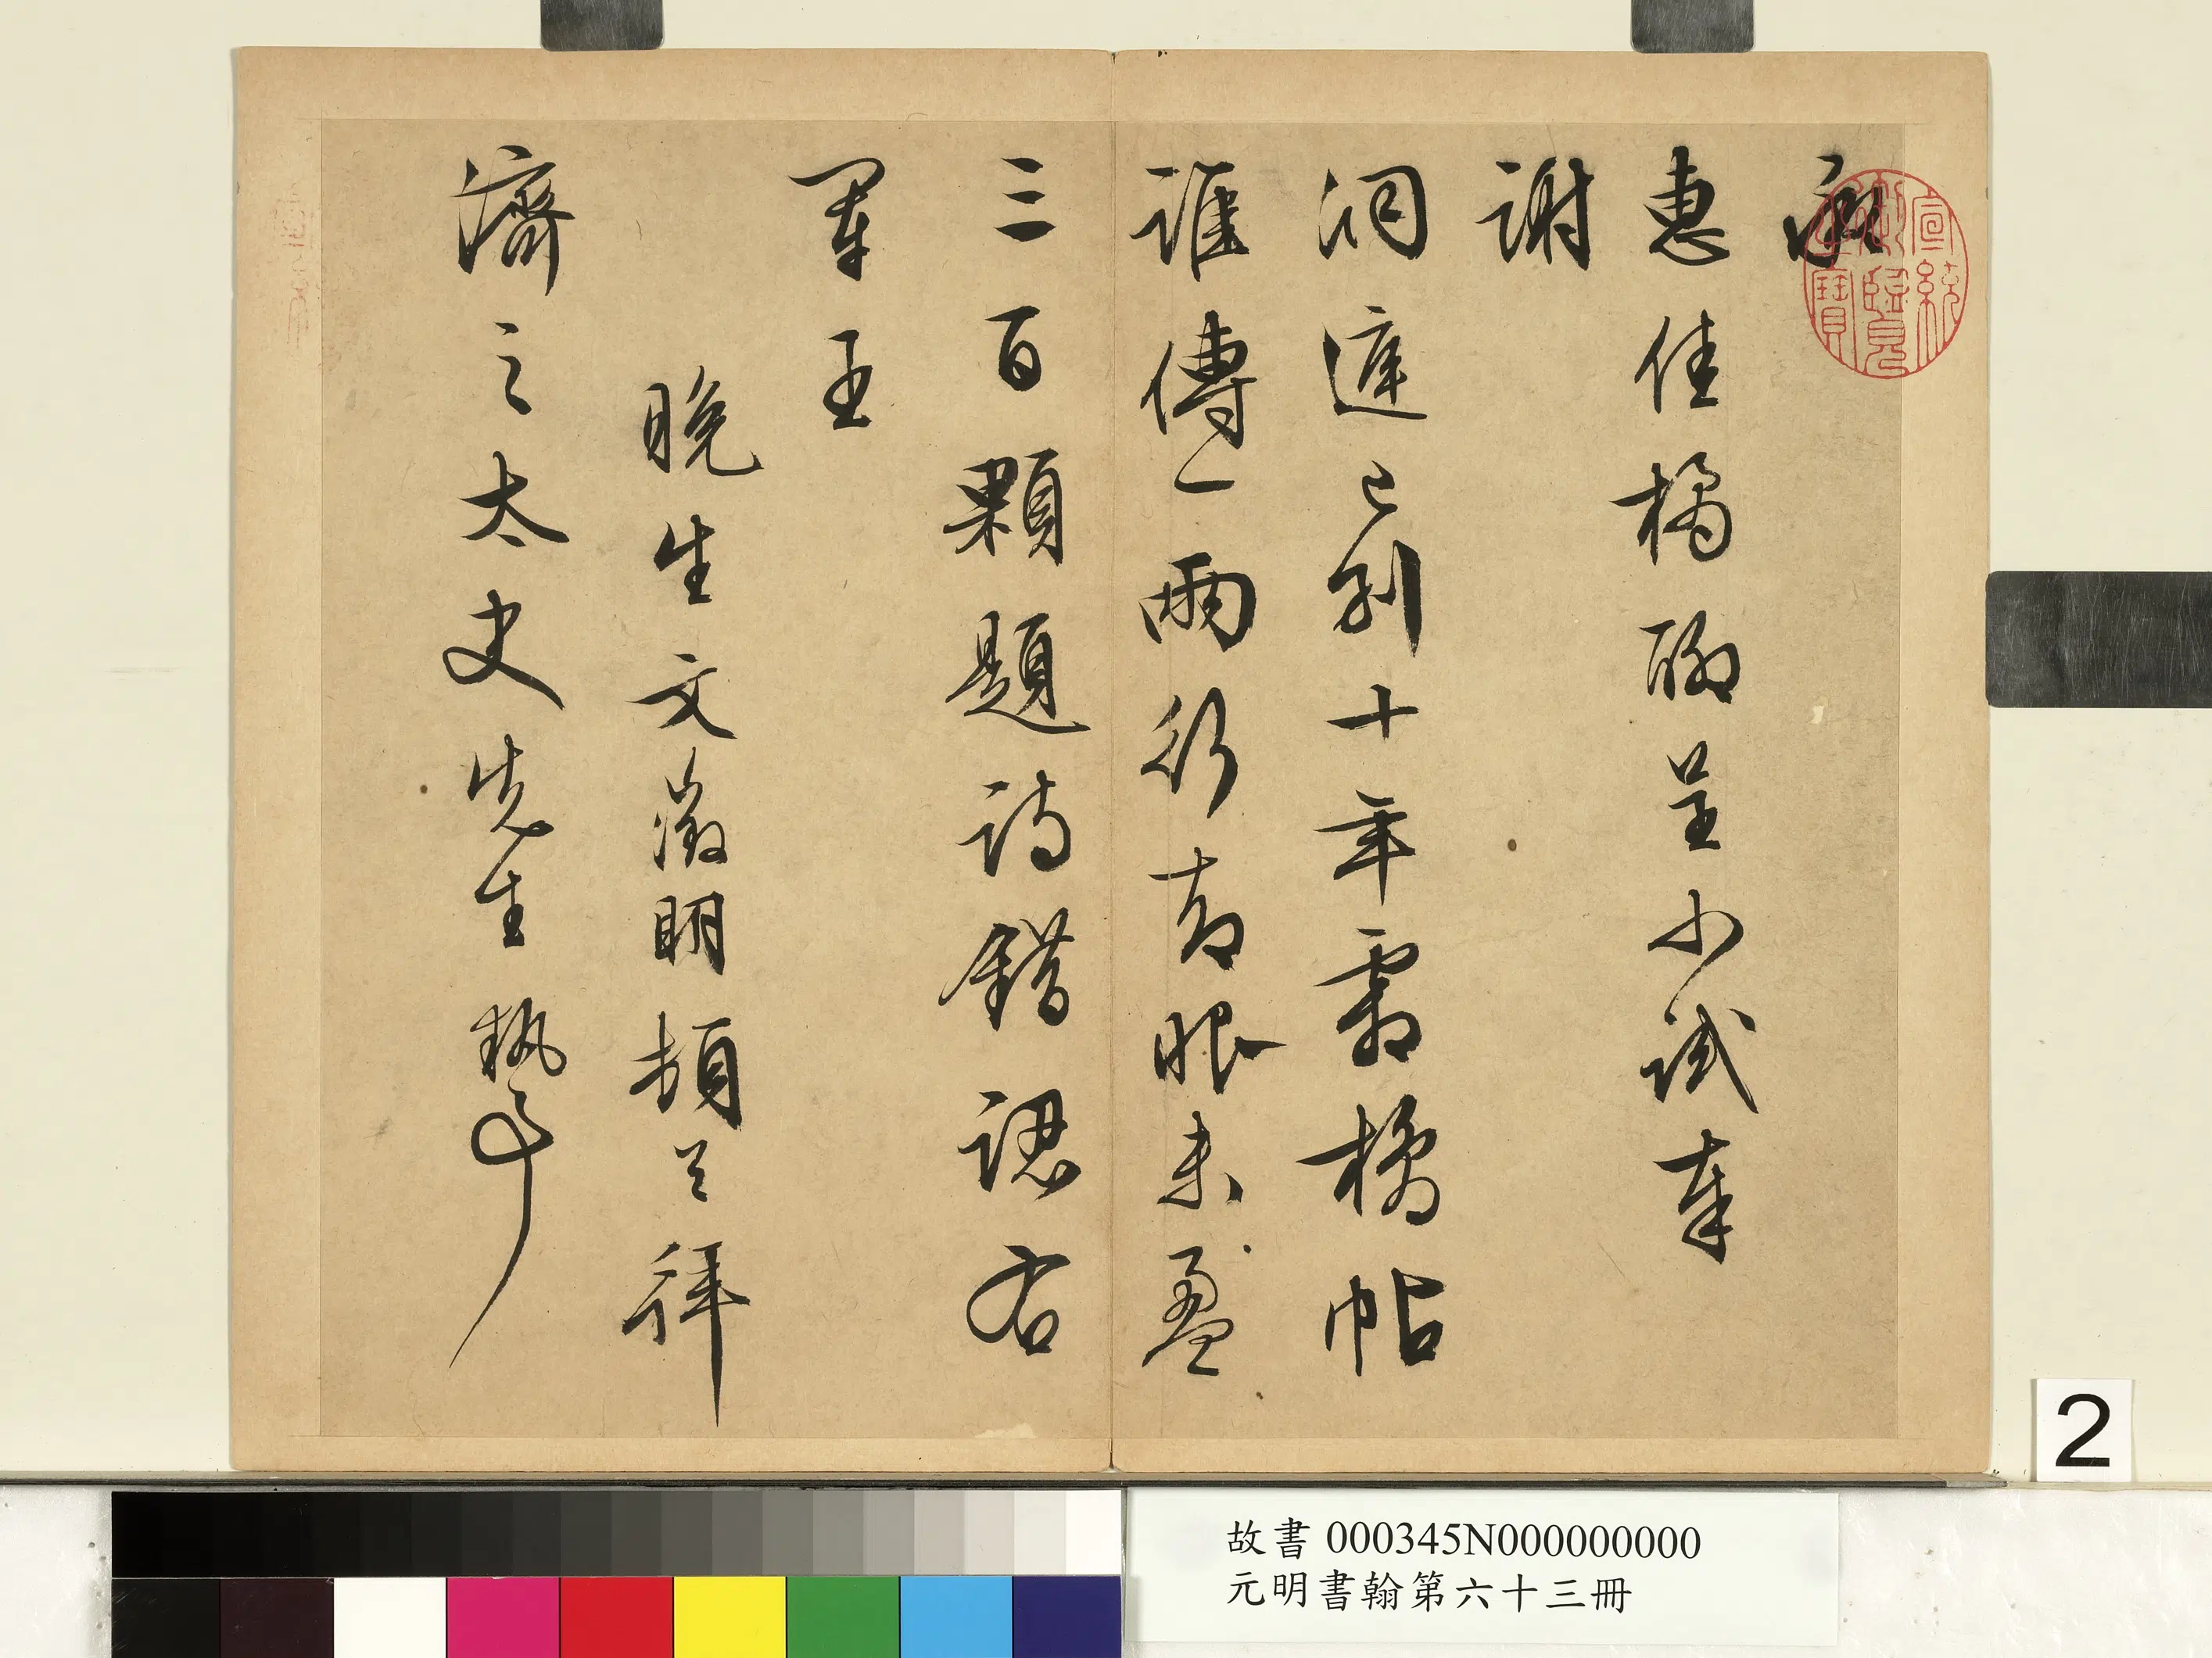 承
惠佳橘聊呈小試奉
謝
洞庭已別十年霜橘帖
誰傳一兩行眼未盈
三百顆題詩錯認右
軍王
晚生文徵明頓首拜
濟之太史先生執事
宣統御覽之寶
2
故書 000345N000000000
元明書翰第六十三冊